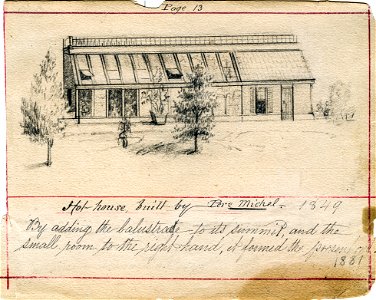 Page 13
Hot house, built by Dero Michel - 1849
By adding the balustrade to its summit, and the
small room to the right hand, it formed the present
1881